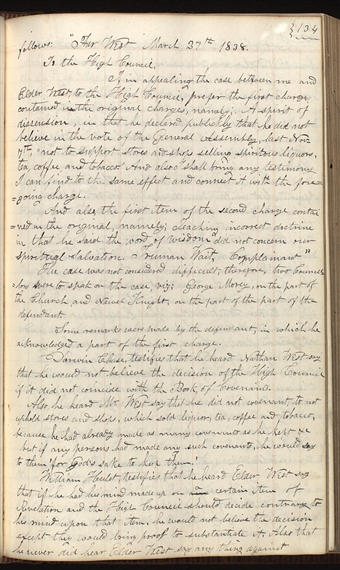 134
follows: "Far West March 27th 1838.
To the High Council,
I, in appealing the case between me and
Elder West to the High Council, prefer the first charge
contained in the original charges, namely; A spirit of
dissension, in that he declared, publickly that he did not
believe in the vote of the General Assembly, last Nov.
7th, "not to support stores and shops selling spiritous liquors,
tea, coffee and tobacco". And also I shall bring any testimony
I can find to the same effect and connect it with the fore-
going charge.
And also, the first item of the second charge contai
ned in the original, namely; teaching incorrect doctrine
in that he said the word of wisdom did not concern our
spiritual salvation. Truman Wait, Complainant"
The case was not considered difficult, therefore, two Counsel
lors were to speak on the case, viz: George Morey, on the part of
the Church and Newel Knight, on the part of the part of the
defendant.
Some remarks were made by the defendant, in which he
acknowledged a part of the first charge.
Darwin Chase, testifies that he heard Nathan West say
that he would not believe the decision of the High Council
if it did not coincide with the Book of Covenants.
Also he heard Mr. West say that he did not covenant to not
uphold stores and shops, which sold liquor, tea, coffee and tobacco,
because he had already made as many covenants as he kept
but if any persons had made any such covenants, he would say
to them for God's sake to keep them.
William Hulet testifies that he heard Elder West say
that if he had his mind made up on certain item of
Revelation and the High Council should decide contrary to
his mind upon that item, he would not believe the decision
except they would bring proof to substantiate it. Also that
he never did hear Elder West say any thing against